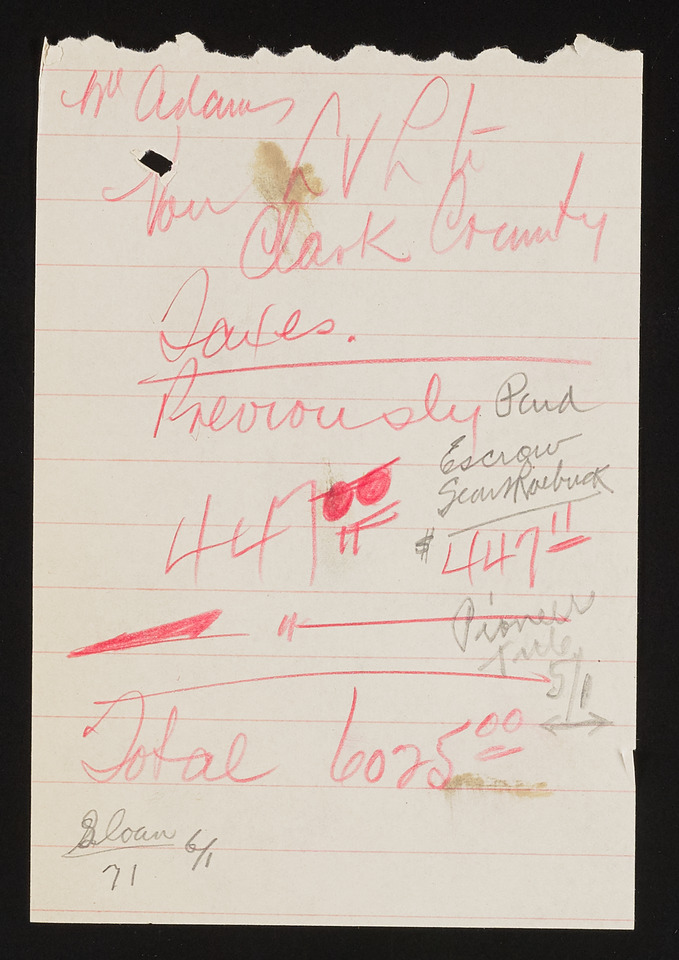 Mr Adams
You L V L tr
Clark County
Taxes.
Previously Paid
Escrow
Sears Roebuck
447 00 $ 447 11
11
Pioneer
Title
5/1
Total 6025 00
Sloan 6/1
71